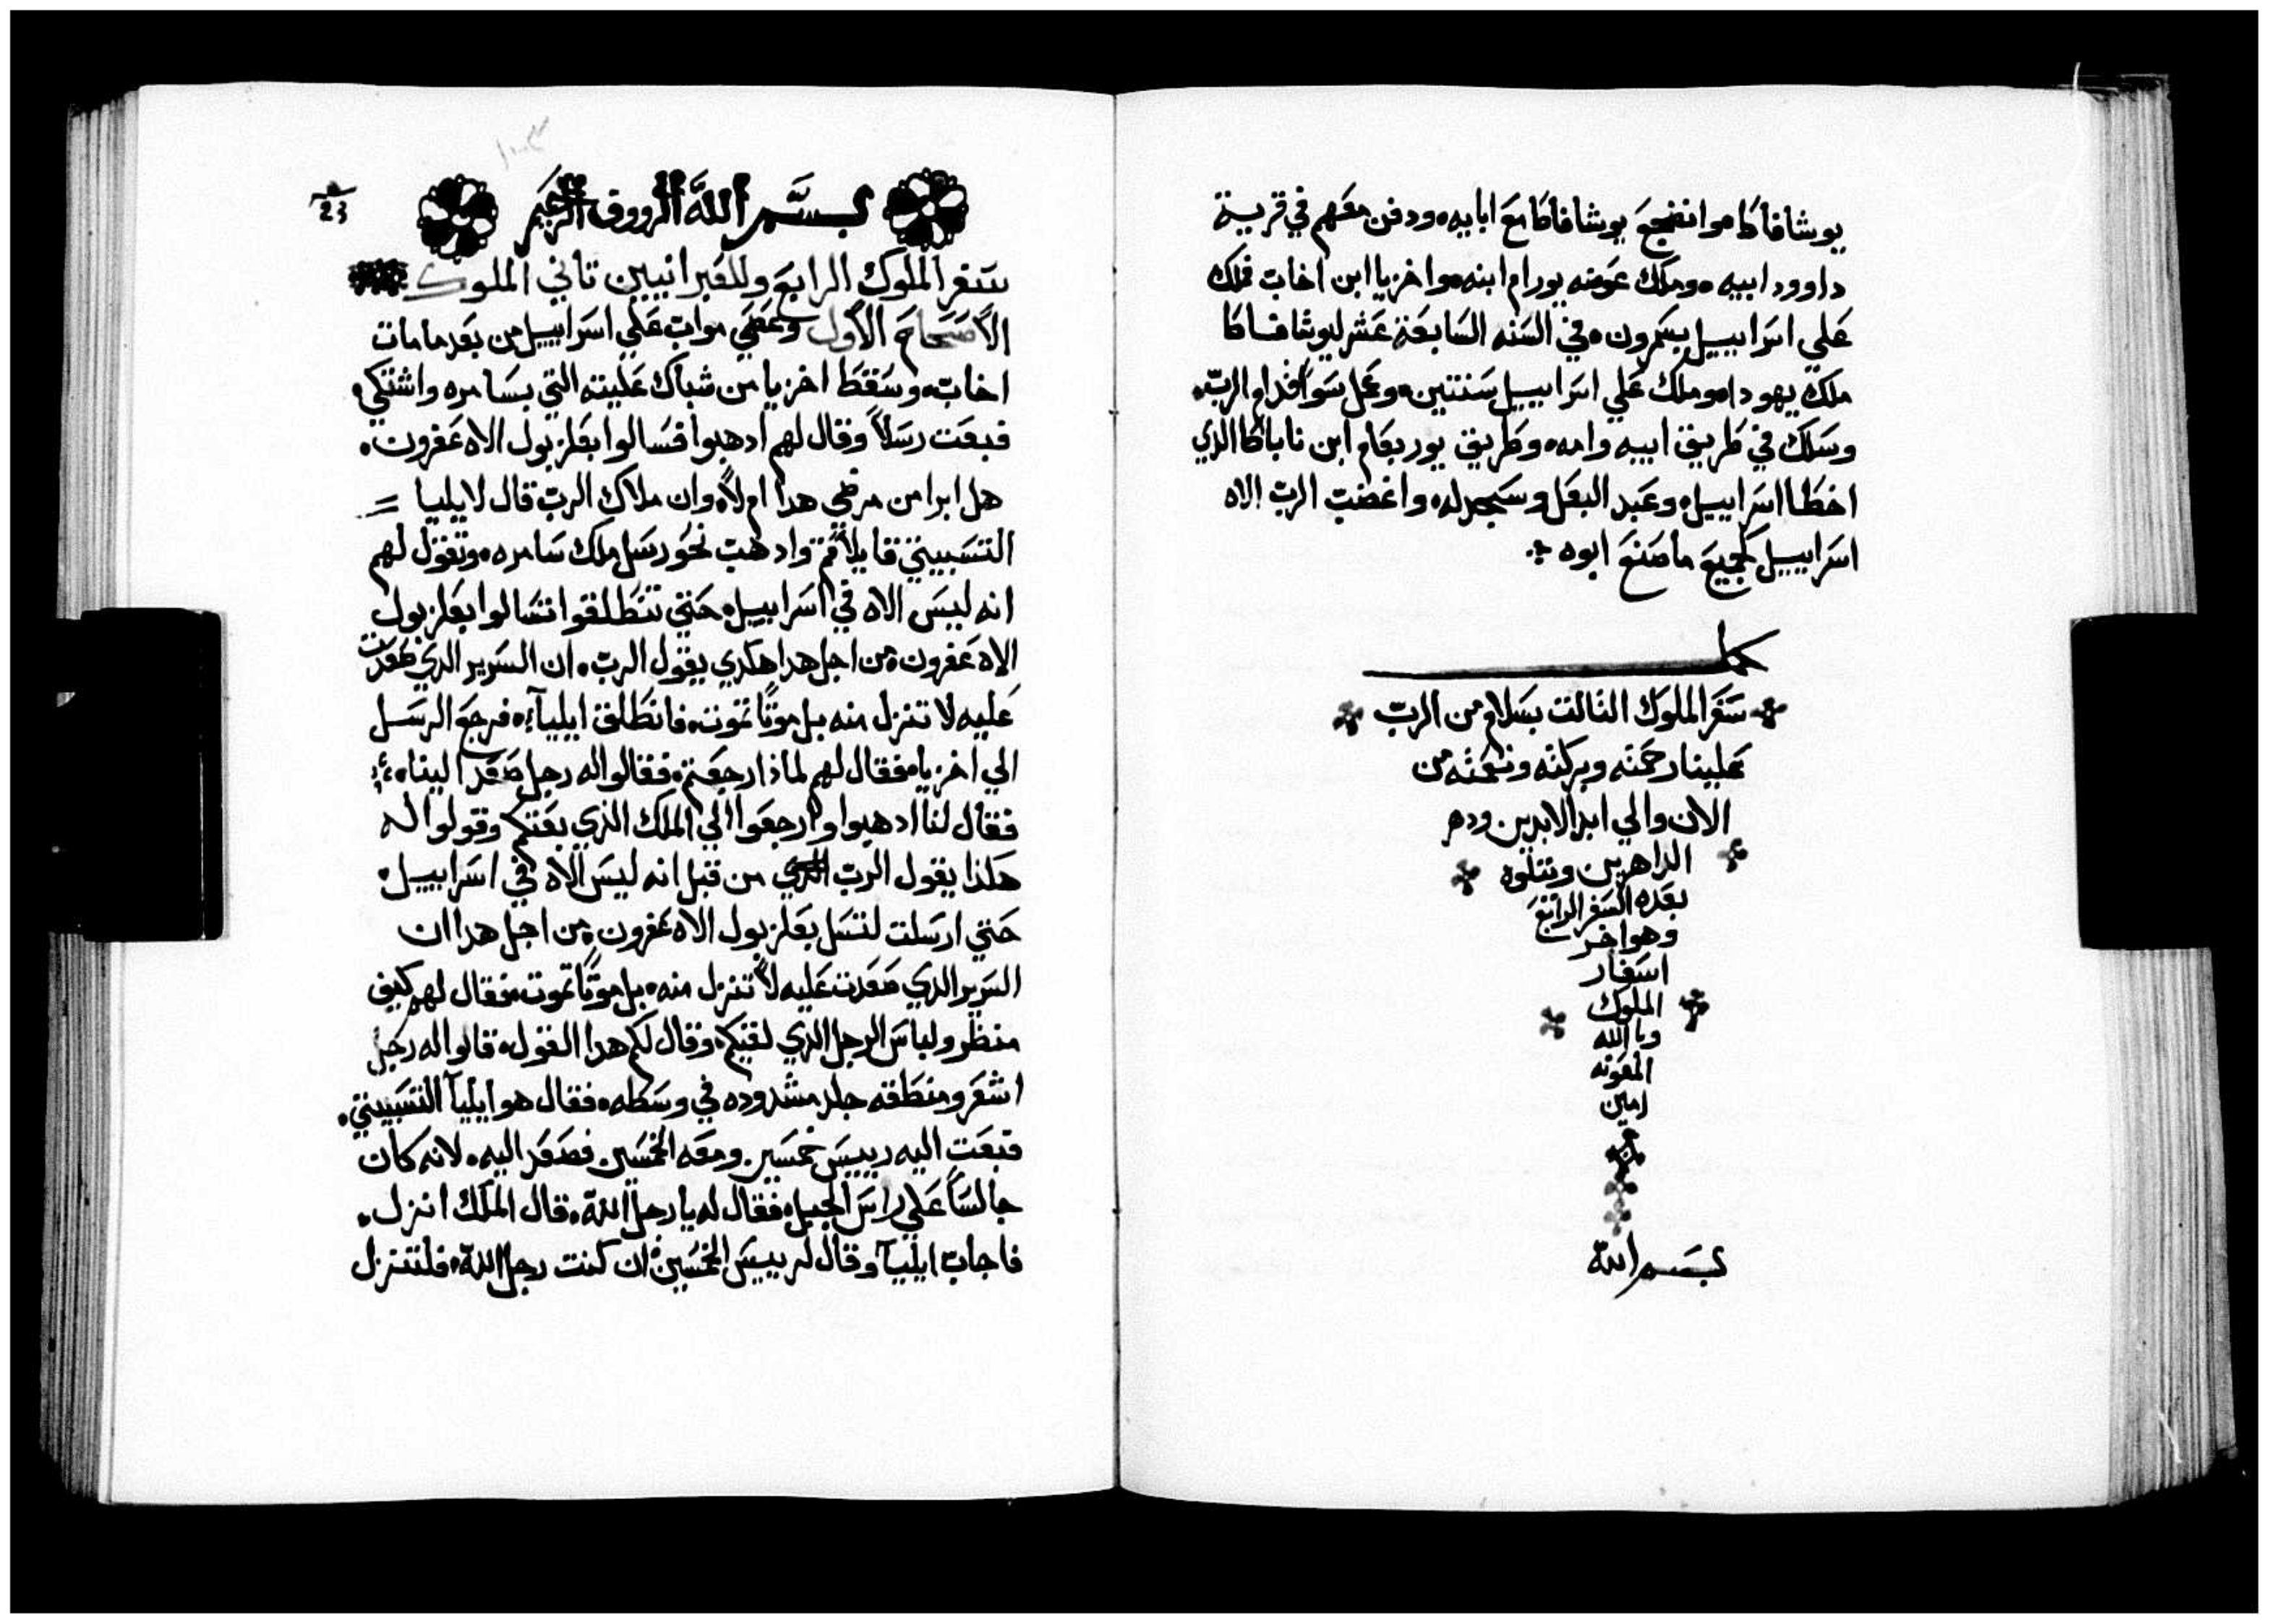 يوشافاطا مو انضجع يوشافاطا مع ابايه ودفن معهم في قرية
داوود ابيه وملك عوضه يورام ابنه واخزيا ابن اخاب فملك
علي اسراييل بسمرون في السنه السابعة عشر ليوشافاطا
ملك يهودا وملك علي اسراييل سنتين وعمل سوا قدام الرب
وسلك في طريق ابيه وامه وطريق يوربعام ابن ناباطا الذي
اخطا اسراييل وعبد البعل وسجد له واغضب الرب الاه
اسراييل كجميع ما صنع ابوه
كمل
سفر الملوك التالت بسلام من الرب
علينا رحمته وبركته ونعمته من
الان والي ابد الابدين ودهر
الداهرين ونتلوه
بعده السفر الرابع
وهو اخر
اسفار
الملوك
وبالله
المعونه
امين
بسم الله
23
بسم الله الرووف الرحيم
سفر الملوك الرابع وللعبرانيين تاني الملوك
الاصحاح الاول وعصي مواب علي اسراييل من بعد ما مات
اخاب وسقط اخزيا من شباك عليته التي بسامره واشتكي
فبعت رسلاً وقال لهم ادهبوا فسالوا بعلزبول الاه عفرون
هل ابرا من مرضي هدا ام لا وان ملاك الرب قال لايليا
التسبيني قايلا قم وادهب نحو رسل ملك سامره وتقول لهم
انه ليس الاه في اسراييل حتي تنطلقوا تسالوا بعلزبول
الاه عفرون من اجل هدا هكدي يقول الرب ان السرير الدي صعدت
عليه لا تنزل منه بل موتا تموت فانطلق ايليا فرجع الرسل
الي اخزيا فقال لهم لماذا رجعتم فقالوا له رجل صعد الينا
فقال لنا ادهبوا وارجعوا الي الملك الذي بعتكم وقولوا له
هكذا يقول الرب من قبل انه ليس الاه في اسراييل
حتي ارسلت لتسل بعلزبول الاه عفرون من اجل هدا ان
السرير الدي صعدت عليه لا تنزل منه بل موتا تموت فقال لهم كيف
منظر ولباس الرجل الدي لقيكم وقال لكم هدا القول قالوا له رجل
اشعر ومنطقه جلد مشدوده في وسطه فقال هو ايليا التسبيني
فبعت اليه ربيس خمسين ومعه الخمسين فصعد اليه لانه كان
جالسا علي راس الجبل فقال له يا رجل الله قال الملك انزل
فاجاب ايليا وقال لربيس الخمسين ان كنت رجل الله فلتنزل